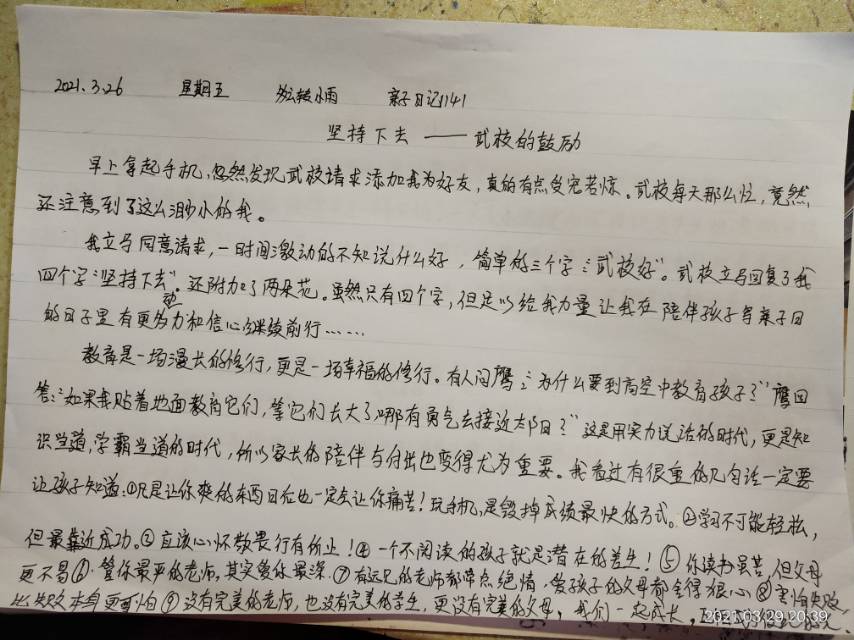 2021.3.26 星期五 多云转小雨 亲子日记1141
坚持下去 —— 武校的鼓励
早上拿起手机,忽然发现武校请求添加我为好友,真的有点受宠若惊。武校每天那么忙,竟然
还注意到了这么渺小的我。
我立马同意请求,一时间激动的不知说什么好,简单的三个字:“武校好”。武校立马回复了我
四个字“坚持下去”。还附加了两朵花。虽然只有四个字,但足以给我力量让我在陪伴孩子写亲子日
的日子里有更多动力和信心继续前行……
教育是一场漫长的修行,更是一场幸福的修行。有人问鹰:“为什么要到高空中教育孩子?”鹰回
答:“如果我贴着地面教育它们,等它们长大了,哪有勇气去接近太阳?”这是用实力说话的时代,更是知
识当道,学霸当道的时代,所以家长的陪伴与付出也变得尤为重要。我看过有很重的几句话一定要
让孩子知道:①凡是让你爽的东西日后也一定会让你痛苦!玩手机,是毁掉成绩最快的方式。②学习不可能轻松,
但最靠近成功。③应该心怀敬畏行有所止!④一个不阅读的孩子就是潜在的差生!⑤你读书虽苦,但父母
更不易⑥管你最严的老师,其实爱你最深。⑦有远见的老师都带点绝情,爱孩子的父母都舍得狠心⑧害怕失败,
比失败本身更可怕⑨没有完美的老师,也没有完美的学生,更没有完美的父母,我们一起成长,
2021.03.29 20:39